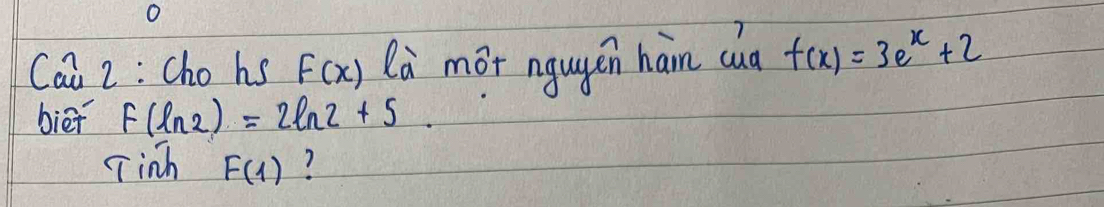 0
Câu 2 : Cho hs F(x) là một nguyên hàm của f(x) = 3e^x + 2
biết F(ln2) = 2ln2 + 5 .
Tính F(1) ?